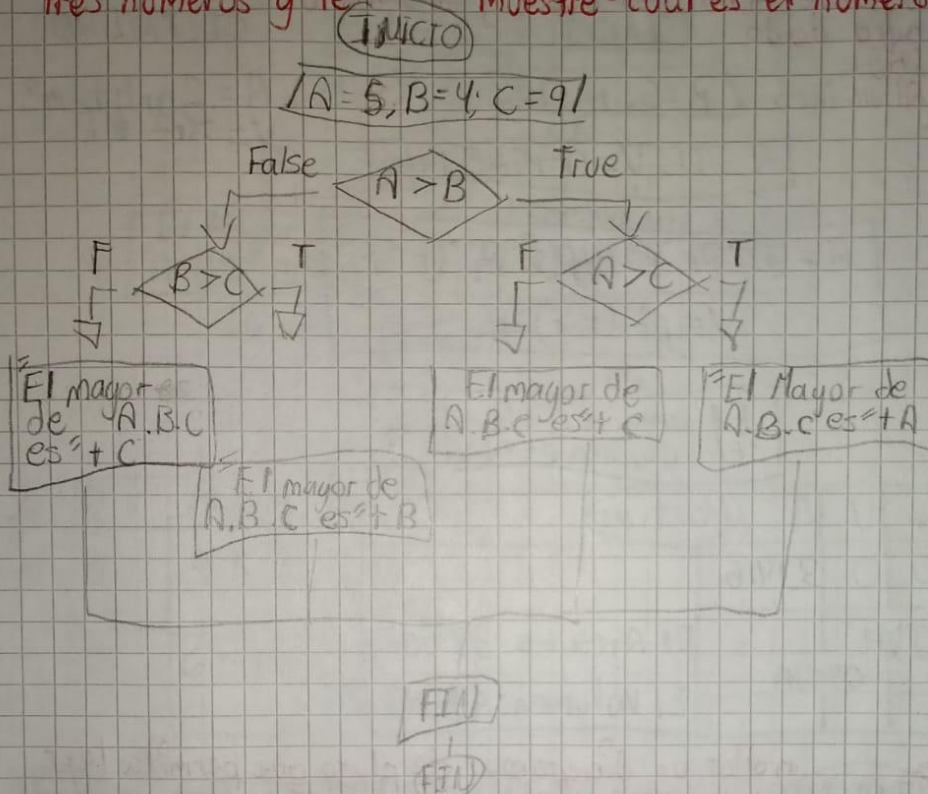 Tres números y le muestre cual es el número
INICIO
A = 5, B = 4, C = 9
False
A > B
True
F
B > C
T
F
A > C
T
"El mayor
de A.B.C
es" + C
"El mayor de
A.B.C es" + B
El mayor de
A.B.C es" + C
"El Mayor de
A.B.C es" + A
FIN
FIN